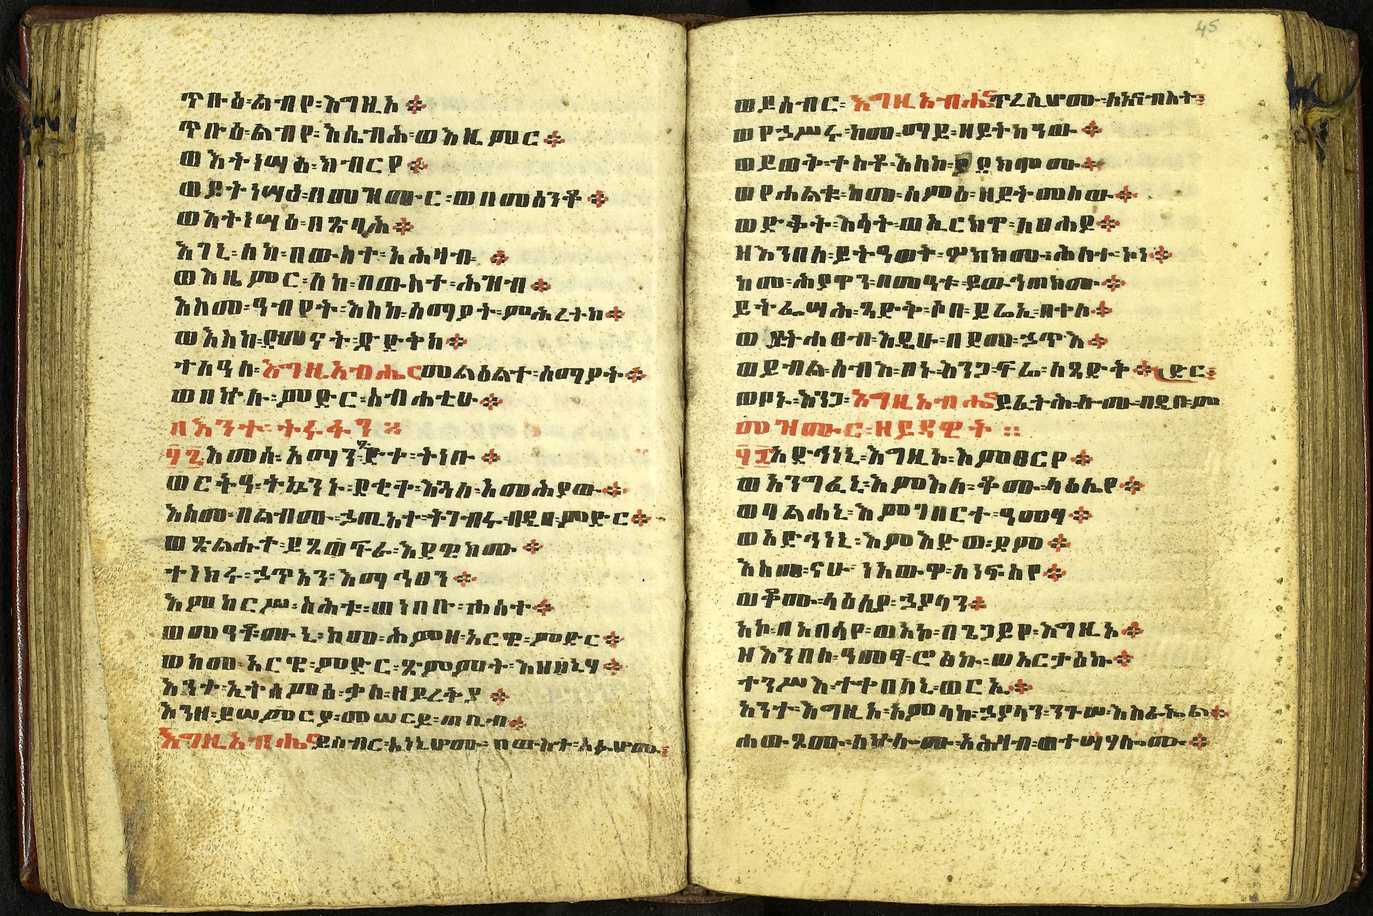 ጥቡዕ፡ልብየ፡እግዚአ።
ጥቡዕ፡ልብየ፡እሴብሕ፡ወእዜምር።
ወእትነሣዕ፡ክብርየ።
ወይትነሣዕ፡በመዝሙር፡ወበመሰንቆ።
ወእትነሣዕ፡በጽባሕ።
እገኒ፡ለከ፡በውስተ፡አሕዛብ።
ወእዜምር፡ለከ፡በውስተ፡ሕዝብ።
እስመ፡ዓብየት፡እስከ፡ሰማያት፡ምሕረትከ።
ወእስከ፡ደመናት፡ጽድቅከ።
ተለዓለ፡እግዚአብሔርመልዕልተ፡ሰማያት።
ወበኵሉ፡ምድር፡ስብሐቲሁ።
ዘእንተ፡ትሩፋን።
፶፯እመሰ፡አማን፡ጽድቀ፡ትነቡ።
ወርትዓ፡ትኴንኑ፡ደቂቀ፡እጓለ፡እመሕያው።
እስመ፡በልብሙ፡ኃጢአተ፡ትገብሩ፡በዲበ፡ምድር።
ወጽልሑተ፡ይጸፍራ፡እደዊክሙ።
ተነክሩ፡ኃጥአን፡እማኅፀን።
እምከርሥ፡ስሕቱ፡ወነበቡ፡ሐሰተ።
ወመዓቶሙኒ፡ከመ፡ሕምዘ፡አርዌ፡ምድር።
ወከመ፡አርዌ፡ምድር፡ጽምምት፡እዘኒሃ።
እንተ፡ኢትሰምዕ፡ቃለ፡ዘይረቅያ።
እንዘ፡ይሠምርያ፡መሠርይ፡ጠቢብ።
እግዚአብሔርይሰብር፡ስነኒሆሙ፡በውስተ፡አፉሆሙ።
45
ወይሰብር፡እግዚአብሔርጥረሲሆሙ፡ለአናብስት።
ወየኃሥሩ፡ከመ፡ማይ፡ዘይትከዓው።
ወይወት፡ቀስቶ፡እስከ፡ያደክሞሙ።
ወየሐልቁ፡ከመ፡ሰምዕ፡ዘይትመሰው።
ወድቀት፡እሳት፡ወኢርከዋ፡ለፀሐይ።
ዘእንበለ፡ይትዓወቅ፡ሦክክሙ፡ሕለተ፡ኮነ።
ከመ፡ሕያዋን፡በመዓቱ፡ይውኅጠክሙ።
ይትፌሣሕ፡ጻድቅ፡ሶበ፡ይሬኢ፡በቀለ።
ወይትሐፀብ፡እዴሁ፡በደመ፡ኃጥእ።
ወይብል፡ሰብእ፡ቦኑ፡እንጋ፡ፍሬ፡ለጻድቅ።
ወቦኑ፡እንጋ፡እግዚአብሔርይፈትሖሙ፡በዲበ፡ምድር።
መዝሙር፡ዘይዳዊት።
፶፰አድኅነኒ፡እግዚኦ፡እምፀርየ።
ወአንግፈኒ፡እምእለ፡ቆሙ፡ላዕሌየ።
ወባልሐኒ፡እምገበርተ፡ዓመፃ።
ወአድኅነኒ፡እምእድወ፡ደም።
እስመ፡ናሁ፡ነአውዋ፡ለነፍስየ።
ወቆሙ፡ላዕሌየ፡ኃያላን።
አኮ፡በአበሳየ፡ወአኮ፡በጌጋይየ፡እግዚኦ።
ዘእንበለ፡ዓመፃ፡ሮፅኩ፡ወአርታዕኩ።
ተንሥእ፡ተቀበለኒ፡ወርኢ።
አንተ፡እግዚኦ፡አምላከ፡ኃያላን፡ንጉሠ፡እስራኤል።
ሐውጾሙ፡ለኵሎሙ፡አሕዛብ፡ወኢትሣሃሎሙ።